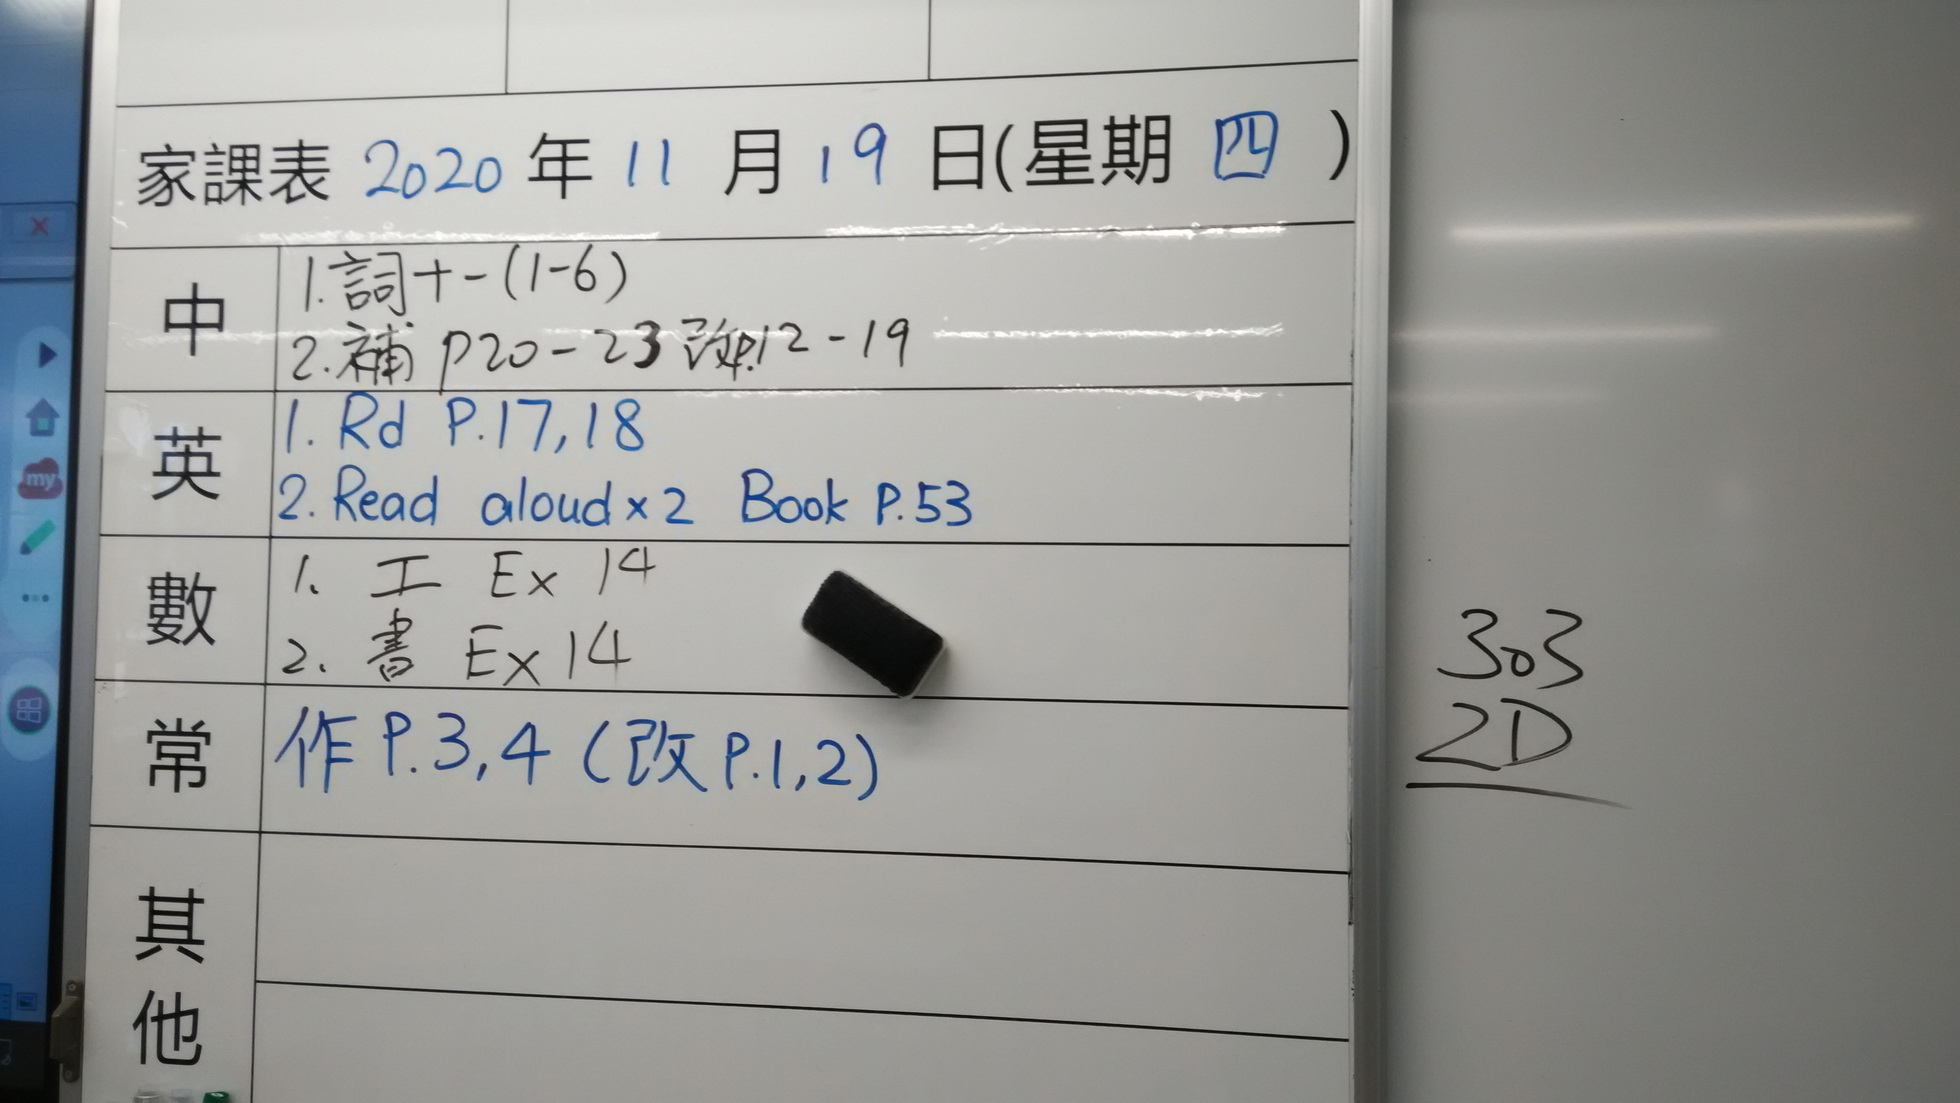 家課表 2020 年 11 月 19 日(星期 四 )
中
1. 詞十一(1-6)
2. 補 P20-23 改P.12-19
英
1. Rd P.17,18
2. Read aloud×2 Book P.53
數
1. 工 Ex 14
2. 書 Ex 14
常
作 P.3,4 (改 P.1,2)
其他
303
2D
my